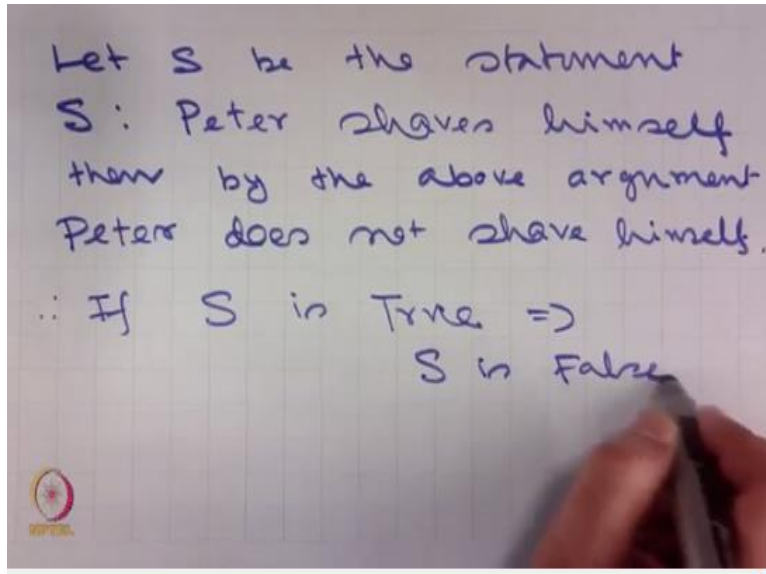 Let S be the statement
S: Peter shaves himself
then by the above argument
Peter does not shave himself.
∴ If S is True =>
S is False
NPTEL